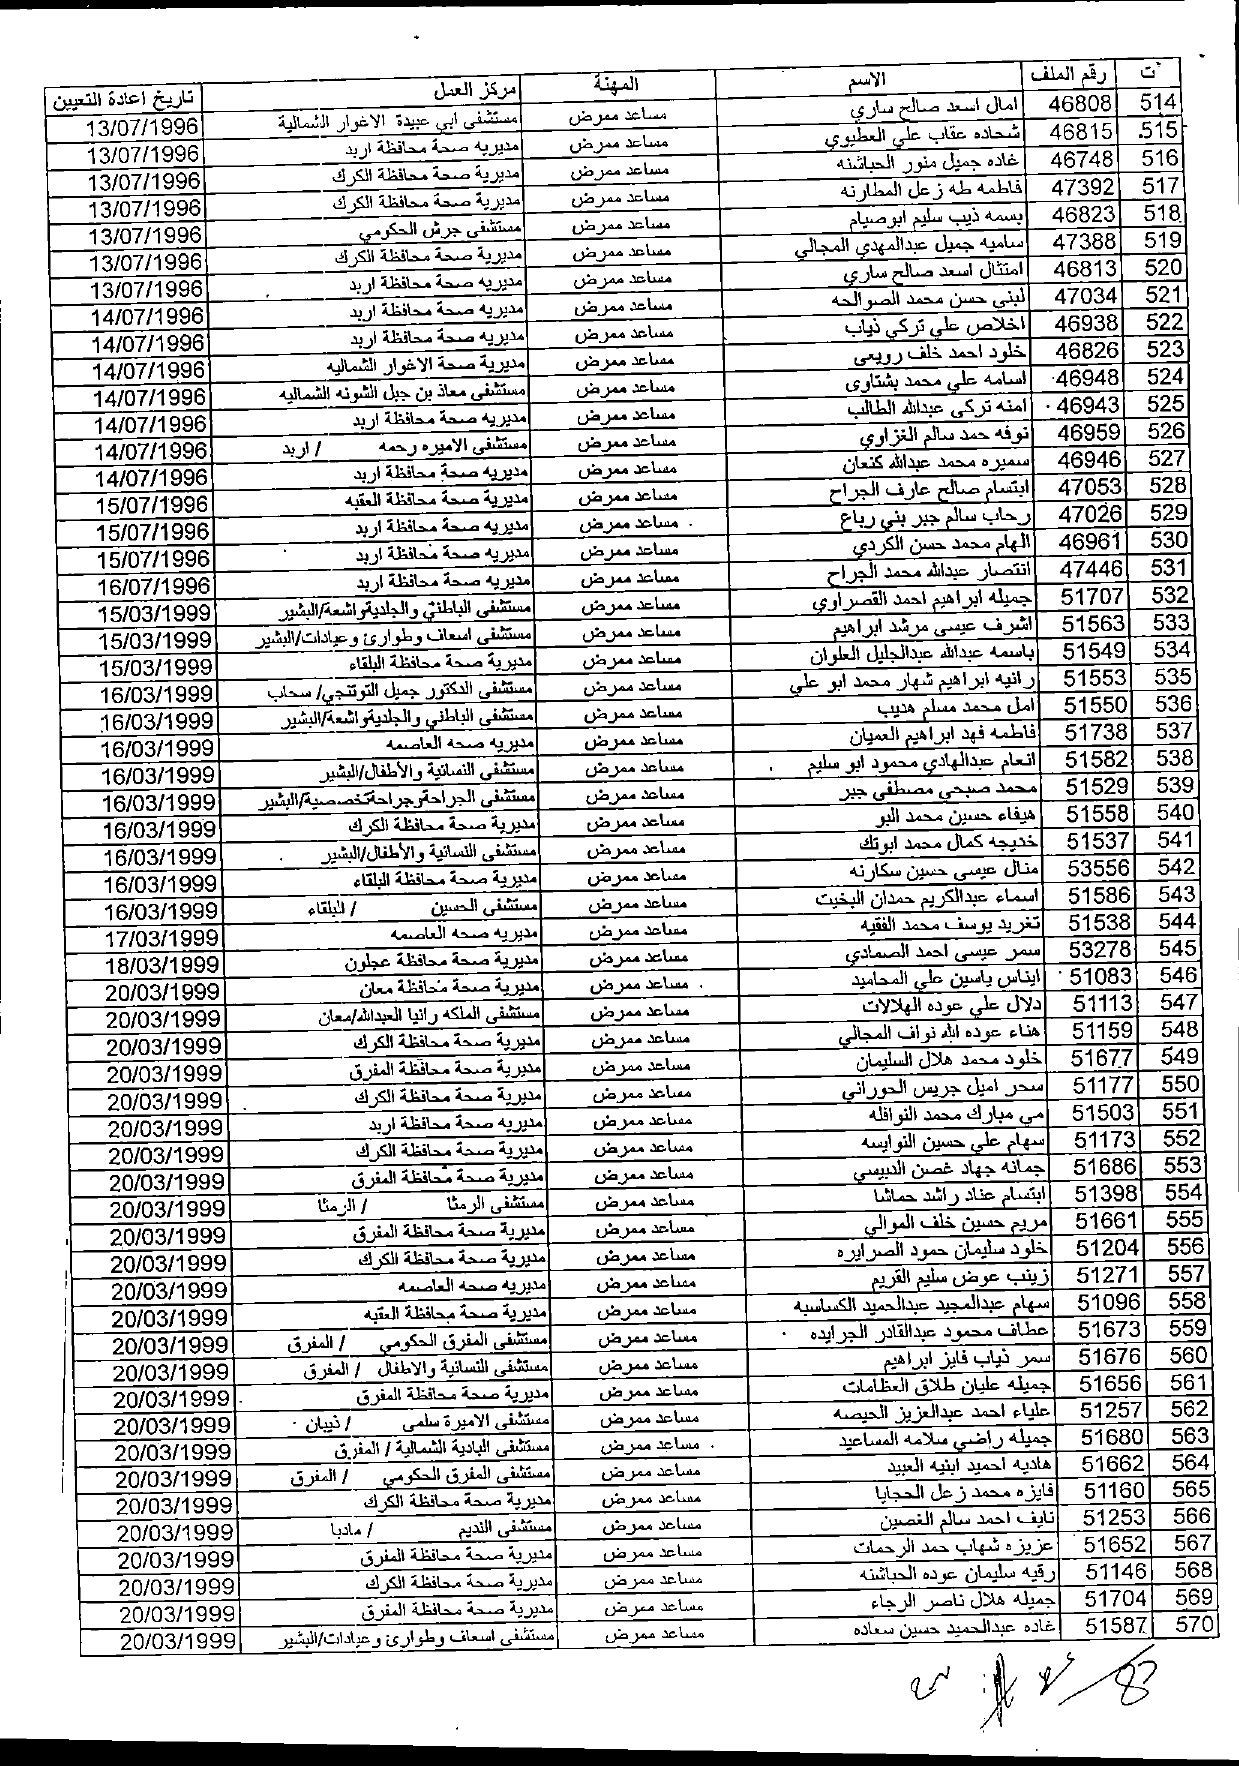 ت رقم الملف الاسم المهنة مركز العمل تاريخ اعادة التعيين
514 46808 امال اسعد صالح ساري مساعد ممرض مستشفى ابي عبيدة الاغوار الشمالية 13/07/1996
515 46815 شحاده عقاب علي العطيوي مساعد ممرض مديريه صحة محافظة اربد 13/07/1996
516 46748 غاده جميل منور الحباشنه مساعد ممرض مديرية صحة محافظة الكرك 13/07/1996
517 47392 فاطمه طه زعل المطارنه مساعد ممرض مديرية صحة محافظة الكرك 13/07/1996
518 46823 بسمه ذيب سليم ابوصيام مساعد ممرض مستشفى جرش الحكومي 13/07/1996
519 47388 ساميه جميل عبدالمهدي المجالي مساعد ممرض مديرية صحة محافظة الكرك 13/07/1996
520 46813 امتثال اسعد صالح ساري مساعد ممرض مديريه صحة محافظة اربد 13/07/1996
521 47034 لبنى حسن محمد الصوالحه مساعد ممرض مديريه صحة محافظة اربد 14/07/1996
522 46938 اخلاص علي تركي ذياب مساعد ممرض مديريه صحة محافظة اربد 14/07/1996
523 46826 خلود احمد خلف رويعى مساعد ممرض مديرية صحة الاغوار الشماليه 14/07/1996
524 46948 اسامه علي محمد بشتاوى مساعد ممرض مستشفى معاذ بن جبل الشونه الشماليه 14/07/1996
525 46943 امنه تركى عبدالله الطالب مساعد ممرض مديريه صحة محافظة اربد 14/07/1996
526 46959 نوفه حمد سالم الغزاوي مساعد ممرض مستشفى الاميره رحمه / اربد 14/07/1996
527 46946 سميره محمد عبدالله كنعان مساعد ممرض مديريه صحة محافظة اربد 14/07/1996
528 47053 ابتسام صالح عارف الجراح مساعد ممرض مديرية صحة محافظة العقبه 15/07/1996
529 47026 رحاب سالم جبر بني رباع مساعد ممرض مديريه صحة محافظة اربد 15/07/1996
530 46961 الهام محمد حسن الكردي مساعد ممرض مديريه صحة محافظة اربد 15/07/1996
531 47446 انتصار عبدالله محمد الجراح مساعد ممرض مديريه صحة محافظة اربد 16/07/1996
532 51707 جميله ابراهيم احمد القصراوي مساعد ممرض مستشفى الباطني والجلديةواشعة/البشير 15/03/1999
533 51563 اشرف عيسى مرشد ابراهيم مساعد ممرض مستشفى اسعاف وطوارئ وعيادات/البشير 15/03/1999
534 51549 باسمه عبدالله عبدالجليل العلوان مساعد ممرض مديرية صحة محافظة البلقاء 15/03/1999
535 51553 رانيه ابراهيم شهار محمد ابو علي مساعد ممرض مستشفى الدكتور جميل التوتنجي/ سحاب 16/03/1999
536 51550 امل محمد مسلم هديب مساعد ممرض مستشفى الباطني والجلديةواشعة/البشير 16/03/1999
537 51738 فاطمه فهد ابراهيم العميان مساعد ممرض مديريه صحه العاصمه 16/03/1999
538 51582 انعام عبدالهادي محمود ابو سليم مساعد ممرض مستشفى النسائية والأطفال/البشير 16/03/1999
539 51529 محمد صبحي مصطفى جبر مساعد ممرض مستشفى الجراحةوجراحةتخصصية/البشير 16/03/1999
540 51558 هيفاء حسين محمد البو مساعد ممرض مديرية صحة محافظة الكرك 16/03/1999
541 51537 خديجه كمال محمد ابوتك مساعد ممرض مستشفى النسائية والأطفال/البشير 16/03/1999
542 53556 منال عيسى حسين سكارنه مساعد ممرض مديرية صحة محافظة البلقاء 16/03/1999
543 51586 اسماء عبدالكريم حمدان البخيت مساعد ممرض مستشفى الحسين / البلقاء 16/03/1999
544 51538 تغريد يوسف محمد الفقيه مساعد ممرض مديريه صحه العاصمه 17/03/1999
545 53278 سمر عيسى احمد الصمادي مساعد ممرض مديرية صحة محافظة عجلون 18/03/1999
546 51083 ايناس ياسين علي المحاميد مساعد ممرض مديرية صحة محافظة معان 20/03/1999
547 51113 دلال علي عوده الهلالات مساعد ممرض مستشفى الملكه رانيا العبدالله/معان 20/03/1999
548 51159 هناء عوده الله نواف المجالي مساعد ممرض مديرية صحة محافظة الكرك 20/03/1999
549 51677 خلود محمد هلال السليمان مساعد ممرض مديرية صحة محافظة المفرق 20/03/1999
550 51177 سحر اميل جريس الحوراني مساعد ممرض مديرية صحة محافظة الكرك 20/03/1999
551 51503 مي مبارك محمد النوافله مساعد ممرض مديريه صحة محافظة اربد 20/03/1999
552 51173 سهام علي حسين النوايسه مساعد ممرض مديرية صحة محافظة الكرك 20/03/1999
553 51686 جمانه جهاد غصن الدبيسي مساعد ممرض مديرية صحة محافظة المفرق 20/03/1999
554 51398 ابتسام عناد راشد حماشا مساعد ممرض مستشفى الرمثا / الرمثا 20/03/1999
555 51661 مريم حسين خلف الموالي مساعد ممرض مديرية صحة محافظة المفرق 20/03/1999
556 51204 خلود سليمان حمود الصرايره مساعد ممرض مديرية صحة محافظة الكرك 20/03/1999
557 51271 زينب عوض سليم القريم مساعد ممرض مديريه صحه العاصمه 20/03/1999
558 51096 سهام عبدالمجيد عبدالحميد الكساسبه مساعد ممرض مديرية صحة محافظة العقبه 20/03/1999
559 51673 عطاف محمود عبدالقادر الجرايده مساعد ممرض مستشفى المفرق الحكومي / المفرق 20/03/1999
560 51676 سمر ذياب فايز ابراهيم مساعد ممرض مستشفى النسائية والاطفال / المفرق 20/03/1999
561 51656 جميله عليان طلاق العظامات مساعد ممرض مديرية صحة محافظة المفرق 20/03/1999
562 51257 علياء احمد عبدالعزيز الحيصه مساعد ممرض مستشفى الاميرة سلمى / ذيبان 20/03/1999
563 51680 جميله راضي سلامه المساعيد مساعد ممرض مستشفى البادية الشمالية / المفرق 20/03/1999
564 51662 هاديه احميد ابنيه العبيد مساعد ممرض مستشفى المفرق الحكومي / المفرق 20/03/1999
565 51160 فايزه محمد زعل الحجايا مساعد ممرض مديرية صحة محافظة الكرك 20/03/1999
566 51253 نايف احمد سالم الغصين مساعد ممرض مستشفى النديم / مادبا 20/03/1999
567 51652 عزيزه شهاب حمد الرحمات مساعد ممرض مديرية صحة محافظة المفرق 20/03/1999
568 51146 رقيه سليمان عوده الحباشنه مساعد ممرض مديرية صحة محافظة الكرك 20/03/1999
569 51704 جميله هلال ناصر الرجاء مساعد ممرض مديرية صحة محافظة المفرق 20/03/1999
570 51587 غاده عبدالحميد حسين سعاده مساعد ممرض مستشفى اسعاف وطوارئ وعيادات/البشير 20/03/1999